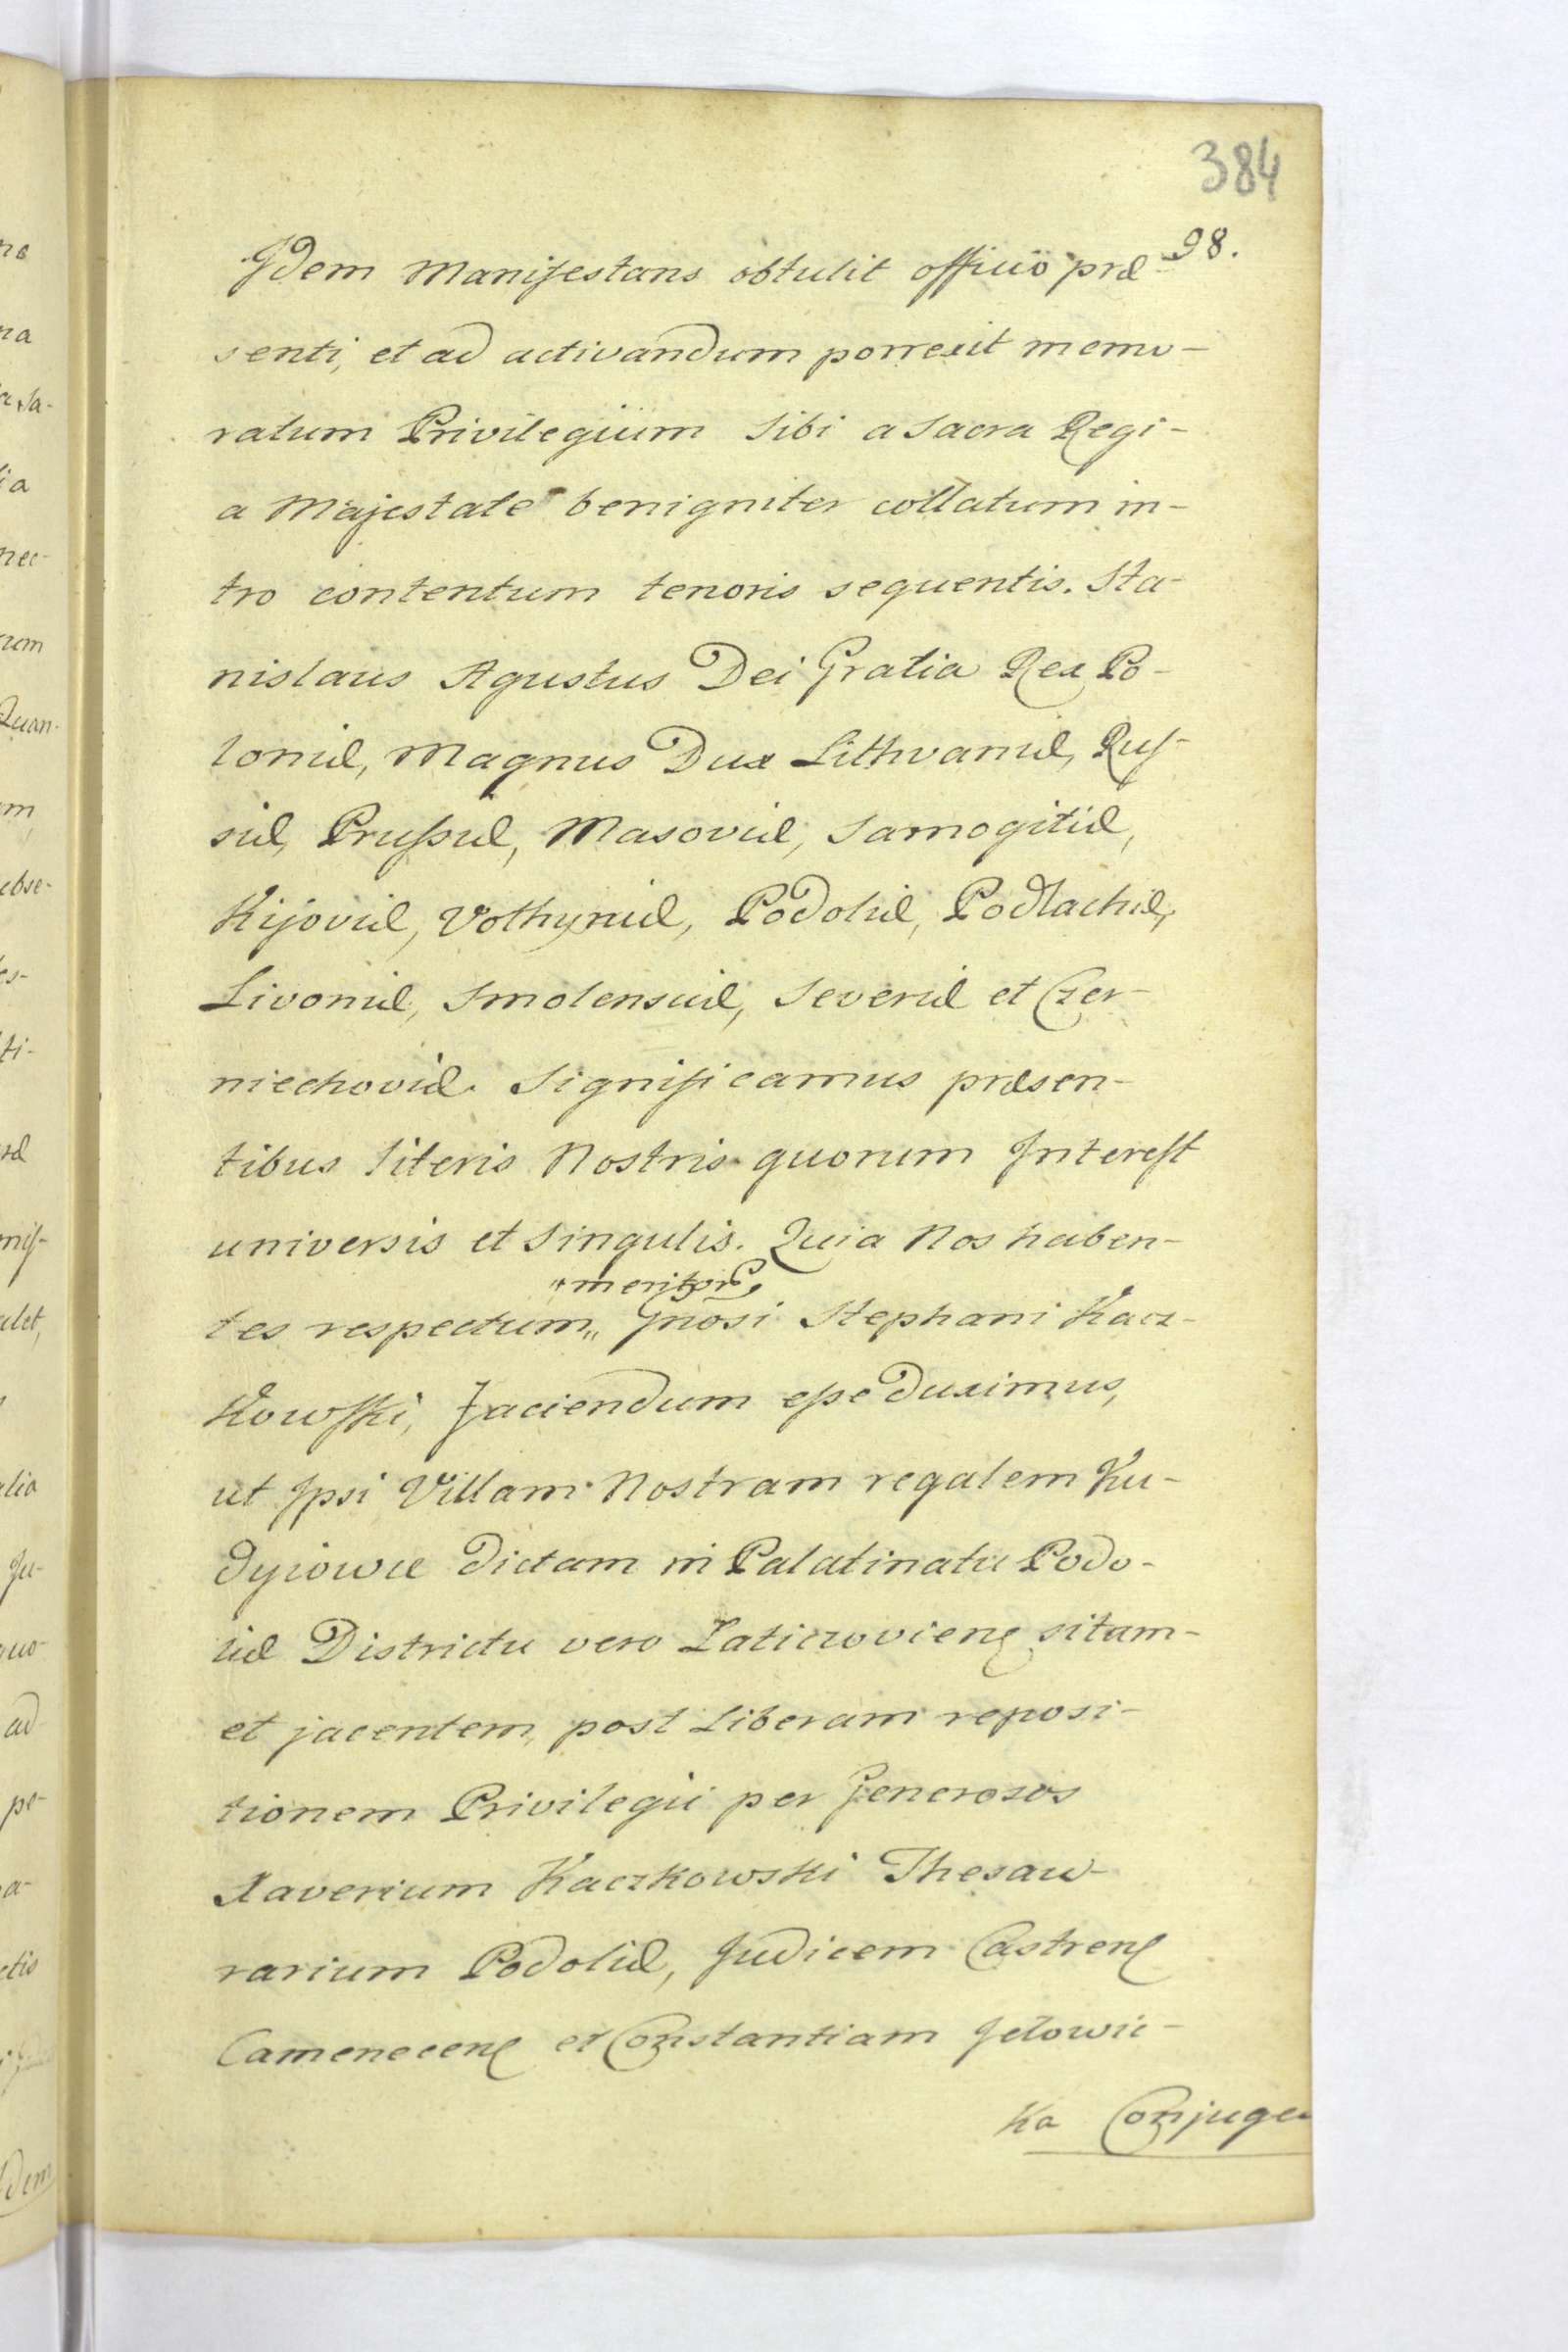 384
98.
Idem Manifestans obtulit officiö præ-
senti, et ad activandum porrexit memo-
ratum Privilegiüm Sibi a Sacra Regi-
a Majestate benigniter collatum in-
tro contentum tenoris sequentis. Sta-
nislaus Agustus Dei Gratia Rex Po-
loniæ, Magnus Dux Lithvaniæ, Rus-
siæ, Prussiæ, Masoviæ, Samogitiæ,
Kijoviæ, Volhyniæ, Podoliæ, Podlachiæ,
Livoniæ, Smolensciæ, Severiæ et Czer-
niechoviæ. Significamus præsen-
tibus literis Nostris quorum Interest
universis et Singulis. Quia Nos haben-
"meritor
tes respectum„ Gnosi Stephani Kacz-
kowski, Faciendum esse duximus,
ut Ipsi Villam Nostram regalem Ku-
dyiowce dictam in Palatinatu Podo-
liæ Districtu vero Laticzovien sitam-
et jacentem, post Liberam reposi-
tionem Privilegii per Generosos
Xaverium Kaczkowski Thesau-
rarium Podoliæ, Judicem Castren
Camenecen et Constantiam Jełowic-
ka Conjuges